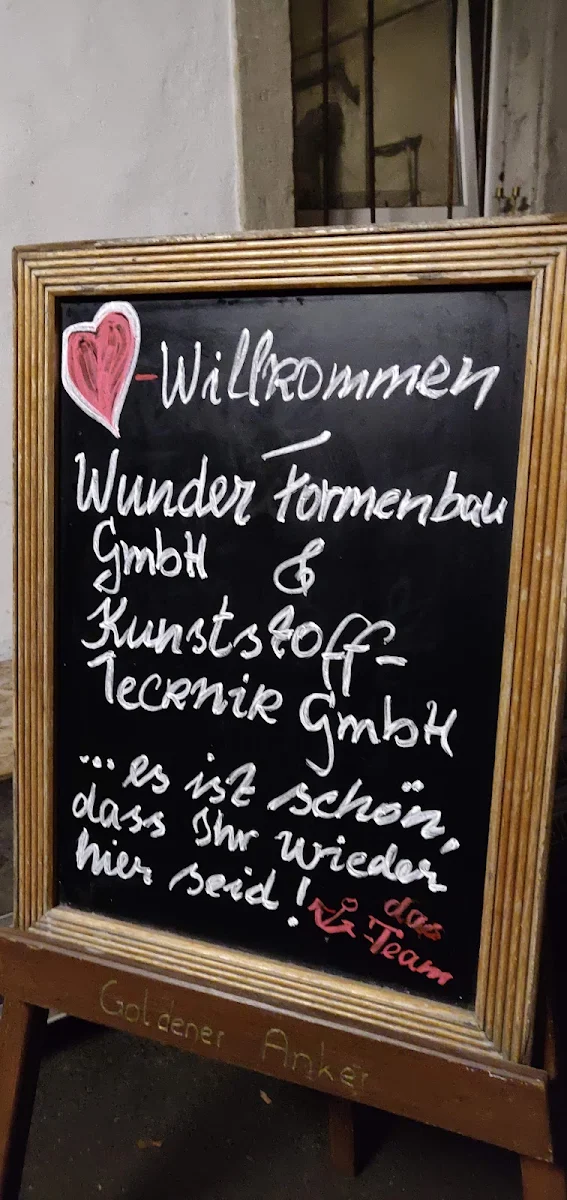 - Willkommen
Wunder Formenbau
GmbH &
Kunststoff-
Technik GmbH
... es ist schön,
dass Ihr wieder
hier seid!
das
-Team
Goldener Anker